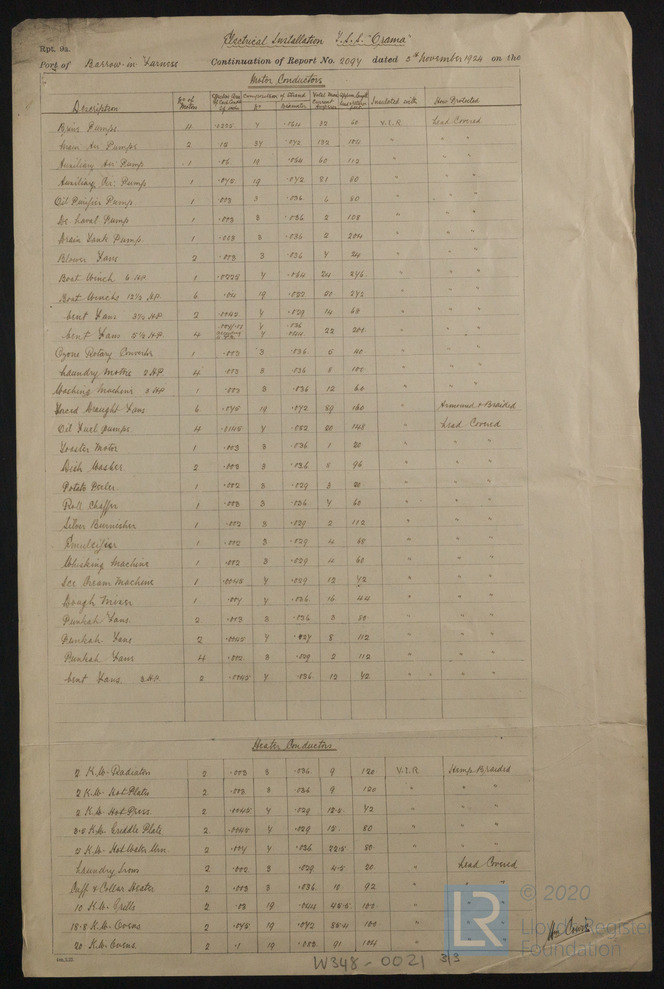 Electrical Installation T.S.S. "Orama"
Rpt. 9a.
Port of Barrow-in-Furness Continuation of Report No. 2094 dated November 1924 on the
Motor Conductors
Description No of Motors Effective Area Composition of Strand No Diameter Total Max Current Amperes Approx Length Insulated with How Protected
Brine Pumps 7 .064 60 V.I.R. Lead Covered
Main Air Pumps 2 .12 37 .072 132 " "
Auxiliary Air Pump 1 .06 19 .064 60 112 " "
Auxiliary Air Pump 1 .075 19 .072 81 80 " "
Oil Purifier Pump 1 .003 3 .036 6 80 " "
De Laval Pump 1 .003 3 .036 2 108 " "
Drain Tank Pump 1 .003 3 .036 2 204 " "
Blower Fans 2 .003 3 .036 7 24 " "
Boat Winch 6 HP 1 .0225 7 .064 24 276 " "
Boat Winchs 12½ HP 6 19 272 " "
Vent Fans 2½ HP 2 .0045 7 .029 14 60 " "
Vent Fans 5½ HP 4 7 .036 7 .044 22 200 " "
Ozone Rotary Converter 1 .003 3 .036 5 40 " "
Laundry Motors 2 HP 4 .003 3 .036 8 100 " "
Washing Machine 3 HP 1 .003 3 .036 12 60 " "
Forced Draught Fans 6 .075 19 .072 89 160 " Armoured & Braided
Oil Fuel Pumps 4 .0145 7 .052 20 148 " Lead Covered
Toaster Motor 1 .003 3 .036 1 20 " "
Dish Washer 2 .003 3 .036 5 96 " "
Potato Peeler 1 .002 3 .029 3 20 " "
Roll Chaffer 1 .003 3 .036 7 60 " "
Silver Burnisher 1 .002 3 .029 2 112 " "
Emulcifier 1 .002 3 .029 4 60 " "
Whisking Machine 1 .002 3 .029 4 60 " "
Ice Cream Machine 1 .0045 7 .029 12 72 " "
Dough Mixer 1 .007 7 .036 16 44 " "
Punkah Fans 2 .003 3 .036 3 80 " "
Punkah Fans 2 .0045 7 .029 8 112 " "
Punkah Fans 4 .002 3 .029 2 112 " "
Vent Fans 2 HP 2 .0045 7 .036 12 72 " "
Heater Conductors
2 K.W. Radiators 2 .003 3 .036 9 120 V.I.R. Hemp Braided
2 K.W. Hot Plates 2 .003 3 .036 9 120 " "
2 K.W. Hot Press 2 .0045 7 .029 12.5 72 " "
K.W. Griddle Plate 2 .0045 7 .029 15 80 " "
5 K.W. Hot Water Urn 2 .007 7 .036 22.5 80 " "
Laundry Irons 2 .002 3 .029 4.5 20 " Lead Covered
Cuff & Collar Heater 2 .003 3 .036 10 92 " "
10 K.W. Grills 2 .03 19 .044 45.5 100 "
K.W. Ovens 2 .075 19 .072 100 "
20 K.W. Ovens 2 .1 19 .083 91 104 "
© 2020
LR
Lloyd's Register
Foundation
W348-0021 3/3